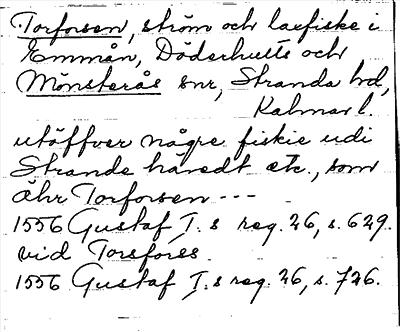 Torforsen, ström och laxfiske i
Emmån, Döderhults och
Mönsterås snr, Stranda hd,
Kalmar l.
utöffver någre fiskie udi
Strande häredt etc., som
ähr Torforsen ---
1556 Gustaf I.s reg. 26, s. 629.
vid Torsfores.
1556 Gustaf I.s reg. 26, s. 726.